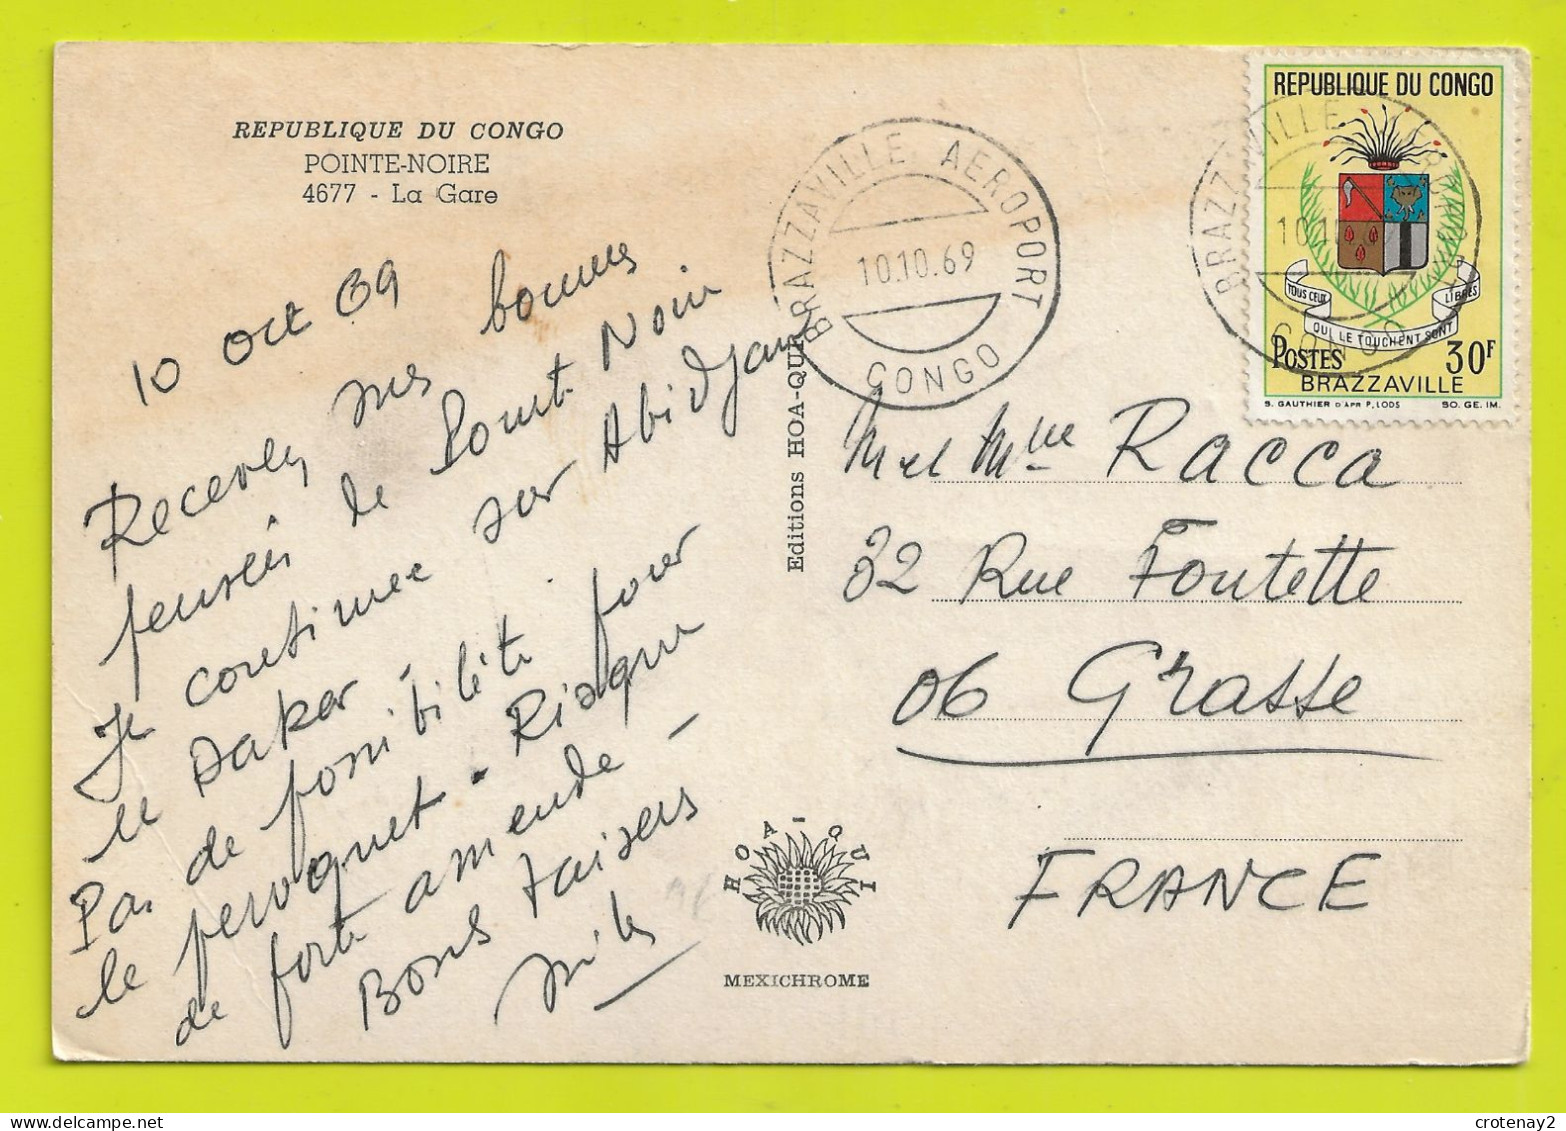 REPUBLIQUE DU CONGO
POINTE-NOIRE
4677 - La Gare
10 oct 69
Recevez mes bonnes
pensées de Pointe Noire
Je continue sur Abidjan
et Dakar -
Pas de possibilité pour
le perroquet - Risque
de forte amende -
Bons baisers
Editions HOA-QUI
HOA-QUI
MEXICHROME
BRAZZAVILLE AEROPORT
10.10.69
CONGO
BRAZZAVILLE AEROPORT
CONGO
REPUBLIQUE DU CONGO
TOUS CEUX QUI LE TOUCHENT SONT LIBRES
POSTES 30F
BRAZZAVILLE
S. GAUTHIER D'APR P. LODS SO. GE. IM.
M et Mme Racca
32 Rue Fontette
06 Grasse
FRANCE
crotenay2